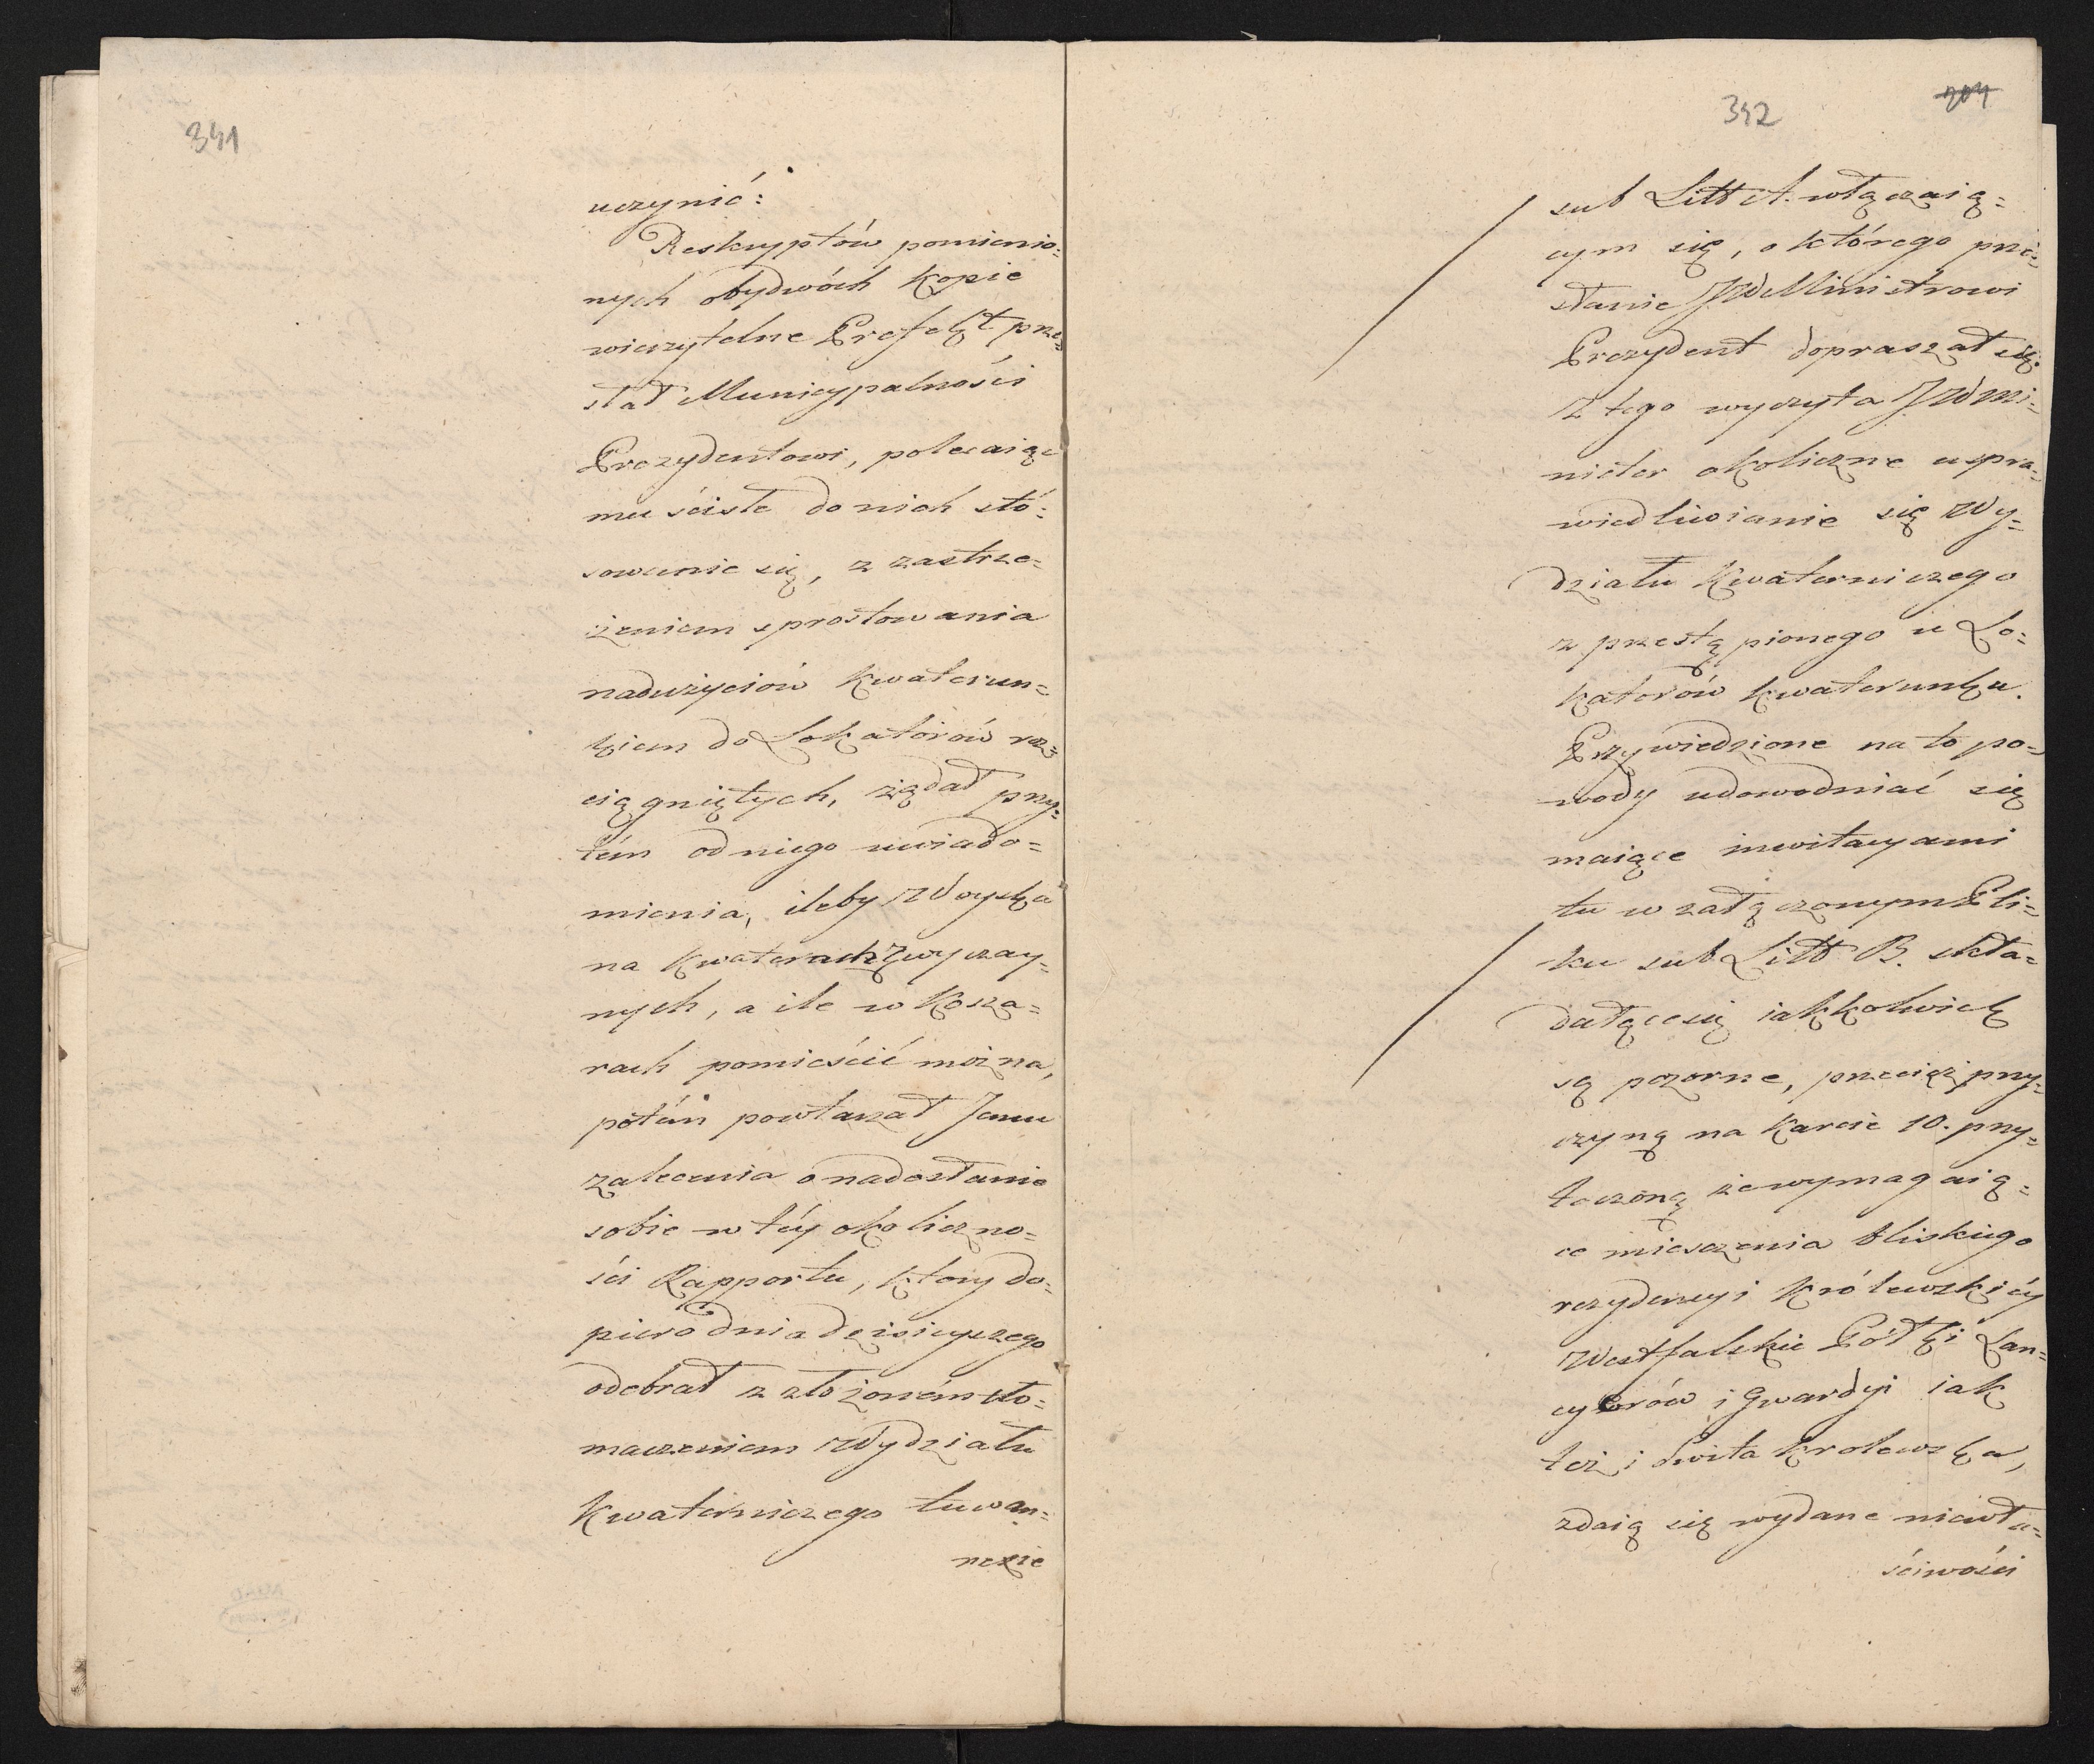 341
uczynić:
Reskryptów pomienio=
nych obydwóch kopie
wierzytelne Prefekt prze=
słał Municypalności
Prezydentowi, polecaiąc
mu ścisłe do nich stó=
sowanie się, z zastrze=
żeniem sprostowania
nadużyciów kwaterun=
kiem do Lokatorów roz=
ciągniętych, żądał przy=
tém od niego uwiado=
mienia, ileby Woyska
na kwaterach zwyczay=
nych, a ile w Kosza=
rach pomieścić można,
potém powtarzał Jemu
zalecenia o nadesłanie
sobie w téy okoliczno=
ści Rapportu, ktory do=
piero dnia dzisieyszego
odebrał z złożoném tło=
maczeniem Wydziału
Kwaterniczego tu w an=
nexie
342
204
sub Litt A. włączaią=
cym się, o którego prze=
słanie JW Ministrowi
Prezydent dopraszał się.
Z tego wyczyta JW Mi=
nister okoliczne uspra=
wiedliwianie się Wy=
działu Kwaterniczego
z przestąpionego u Lo=
katorów kwaterunku.
Przywiedzione na to po=
wody udowodniać się
maiące inwitacyami
tu w załączonym Pli=
ku sub Litt B. skła=
daiące się iakkolwiek
są pozorne, przecięż przy=
czyną na karcie 10. przy=
toczoną że wymagaią=
ce mieszczenia bliskiego
rezydencyi Królewskiéy
Westfalskie Półki Lan=
cyerów i Gwardyi iak
też i Swita krolewska,
zdaią się wydane niewła=
ściwości